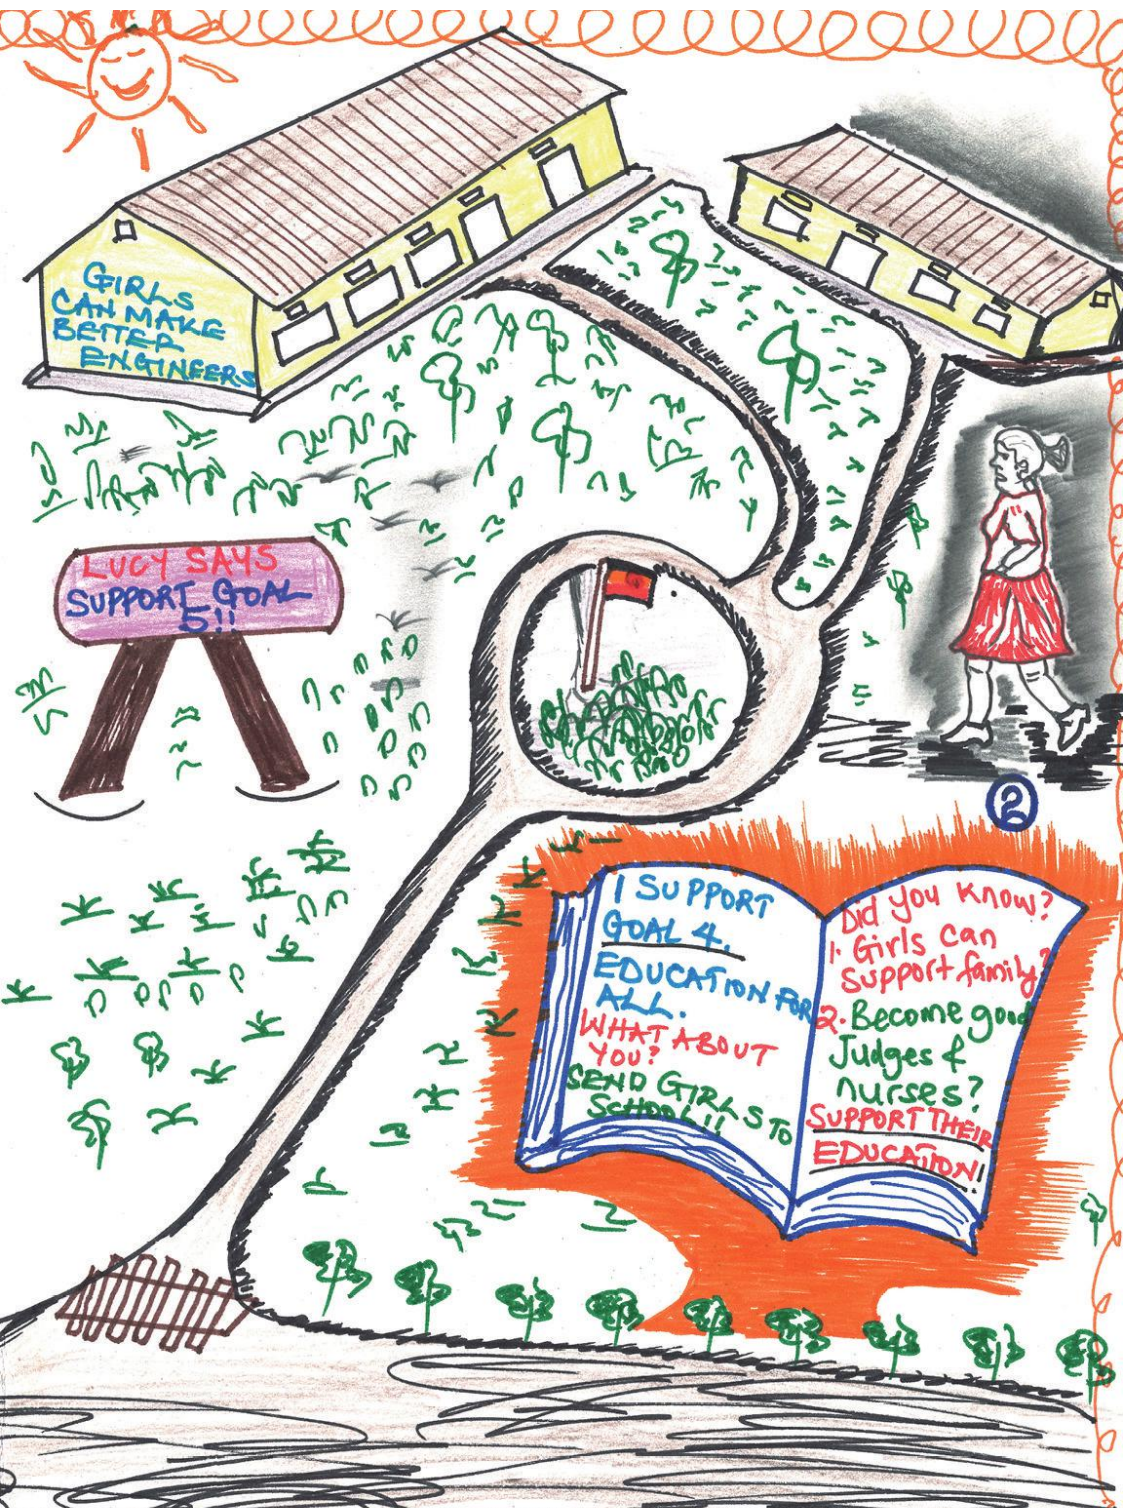 GIRLS
CAN MAKE
BETTER
ENGINEERS
LUCY SAYS
SUPPORT GOAL
5!!
2
I SUPPORT
GOAL 4.
EDUCATION FOR
ALL.
WHAT ABOUT
YOU?
SEND GIRLS TO
SCHOOL!!
Did you know?
1. Girls can
support family?
2. Become good
Judges &
nurses?
SUPPORT THEIR
EDUCATION!